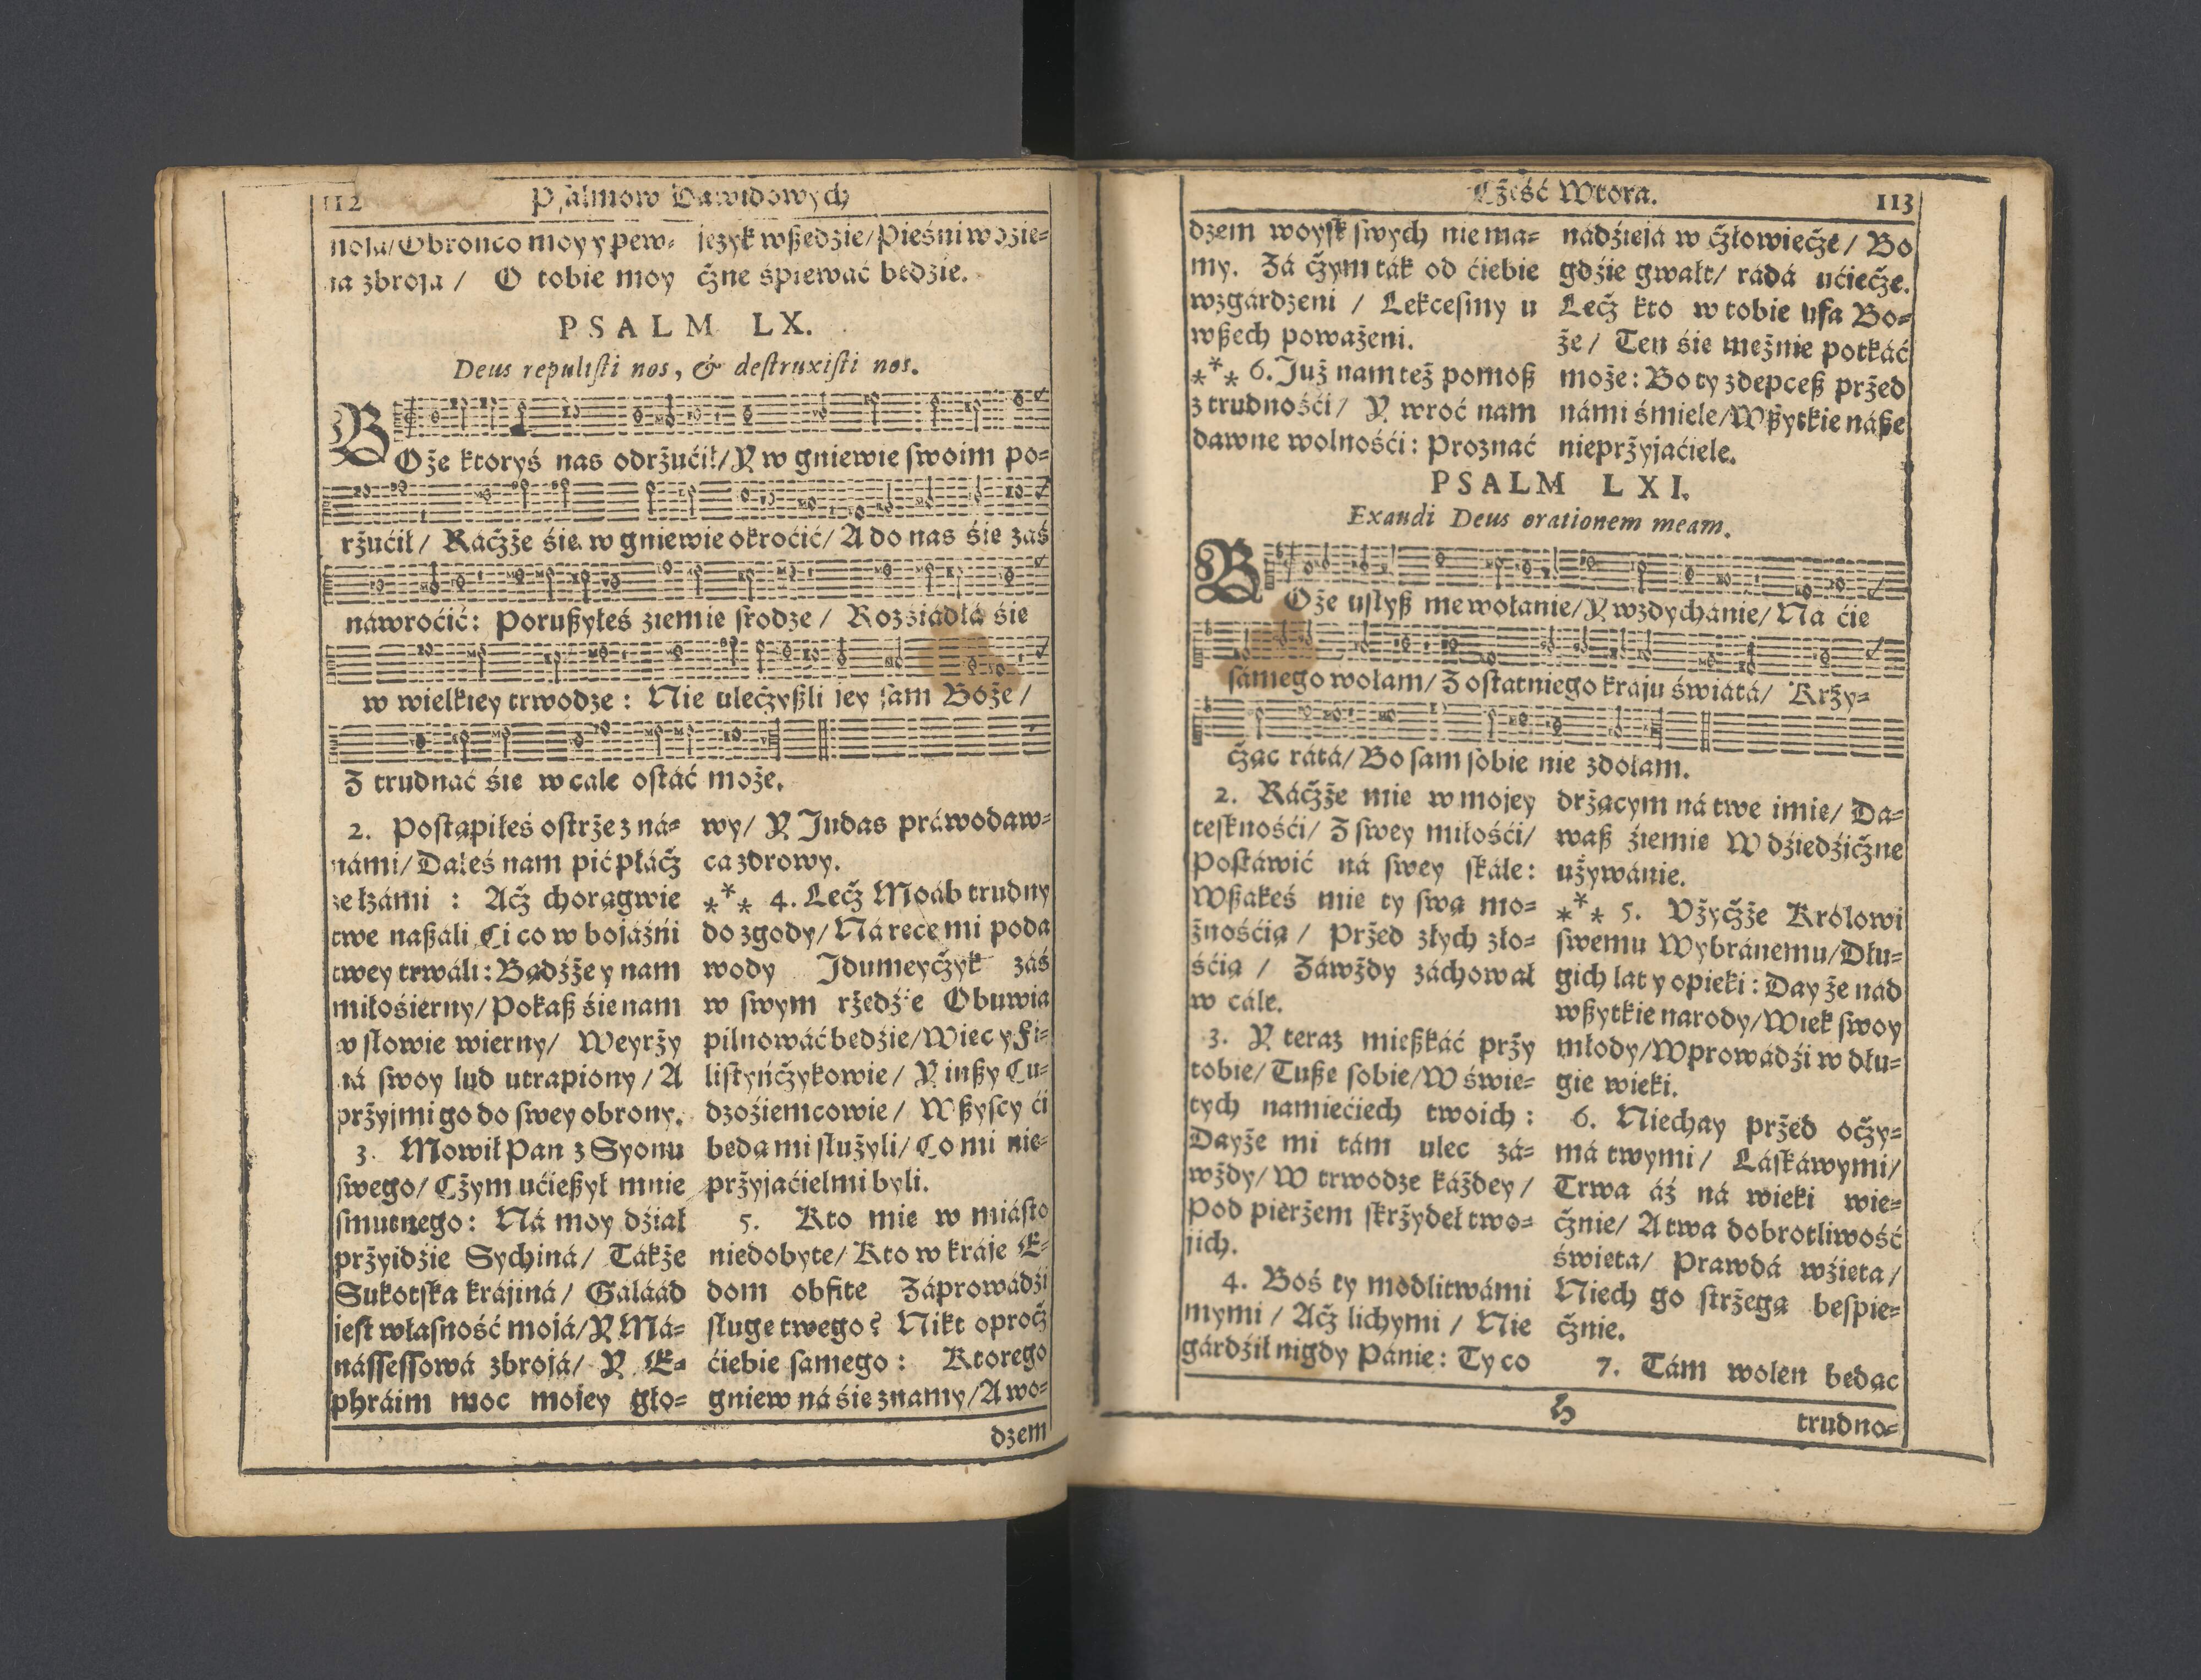 112 Psalmow Dawidowych
noja/Obronco moy y pew⸗
na zbroja / O tobie moy
język wßędzie/Pieśni wdzię⸗
cżne śpiewać będzie.
PSALM LX.
Deus repuliſti nos, & deſtruxiſti nos.
BOże ktoryś nas odrżućił/Y w gniewie ſwoim po⸗
rżućił/ Racżże śię w gniewie okroćić/ A do nas śię zaś
náwroćić: Porußyłeś ziemię ſrodze / Rozsiadłá śię
w wielkiey trwodze : Nie ulecżyßli jey ſam Boże /
Z trudnać śię w cale oſtáć może.
2. Poſtąpiłeś oſtrże z ná⸗
námi/Dałeś nam pić płácż
ze łzámi : Acż chorągwie
twe naßali Ci co w bojáźńi
twey trwáli: Bądźże y nam
miłośierny/Pokaß śię nam
w ſłowie wierny/ Weyrży
ná ſwoy lud utrapiony/A
prżyjmi go do ſwey obrony.
3. Mowił Pan z Syonu
ſwego/ Cżym ućießył mnie
ſmutnego: Ná moy dźiał
prżyidźie Sychiná/ Tákże
Sukotſka krájiná/ Gáláád
jeſt właſność mojá/Y Má⸗
náſſeſſowá zbrojá/ Y E⸗
phráim moc mojey gło⸗
wy/ Y Judas práwodaw⸗
ca zdrowy.
*** 4. Lecż Moáb trudny
do zgody/Ná ręce mi poda
wody Jdumeycżyk záś
w ſwym rżędźie Obuwia
pilnowáć będźie/Więc y Fi⸗
liſtyńcżykowie/ Y inßy Cu⸗
dzoźiemcowie/ Wßyſcy ći
będą mi ſłużyli/Co mi nie⸗
prżyjaćielmi byli.
5. Kto mię w miáſto
niedobyte/ Kto w kráje E⸗
dom obfite Záprowádźi
ſługę twego? Nikt oprocż
ćiebie ſamego : Ktorego
gniew ná śię znamy/A wo⸗
dzem
Cżęść Wtora. 113
dzem woyſk ſwych nie ma⸗
my. Zá cżym ták od ćiebie
wzgárdzeni / Lekceſmy u
wßech poważeni.
*** 6. Już nam też pomoß
z trudnośći/ Y wroć nam
dawne wolnośći: Proznać
nádźiejá w cżłowiecże/ Bo
gdźie gwałt/ rádá ućiecże.
Lecż kto w tobie ufa Bo⸗
że/ Ten śię mężnie potkáć
może: Bo ty zdepceß prżed
námi śmiele/Wßytkie náße
nieprżyjaćiele.
PSALM LXI.
Exaudi Deus orationem meam.
BOże uſłyß me wołanie/Y wzdychánie/ Na ćię
ſámego wołam/ Z oſtatniego kraju świátá/ Krży⸗
cżąc rátá/ Bo ſam ſobie nie zdołam.
2. Rácżże mię w mojey
teſknośći/ Z ſwey miłośći/
Poſtáwić ná ſwey ſkále:
Wßakeś mię ty ſwą mo⸗
żnośćią / Prżed złych zło⸗
śćią / Záwżdy záchował
w cále.
3. Y teraz mießkáć prży
tobie/ Tußę ſobie/W świę⸗
tych namiećiech twoich :
Dayże mi tám ulec zá⸗
wżdy/ W trwodze káżdey /
Pod pierżem ſkrżydeł two⸗
jich.
4. Boś ty modlitwámi
mymi / Acż lichymi / Nie
gárdźił nigdy Pánie: Ty co
drżącym ná twe imię/ Da⸗
waß źiemię W dźiedźicżne
używánie.
*** 5. Vżycżże Królowi
ſwemu Wybránemu/Dłu⸗
gich lat y opieki: Day że nád
wßytkie narody/Wiek ſwoy
młody/Wprowádźi w dłu⸗
gie wieki.
6. Niechay prżed ocży⸗
má twymi/ Láſkáwymi/
Trwa áż ná wieki wie⸗
cżnie/ A twa dobrotliwość
święta/ Prawdá wźięta/
Niech go ſtrżegą beſpie⸗
cżnie.
7. Tám wolen będąc
H
trudno⸗